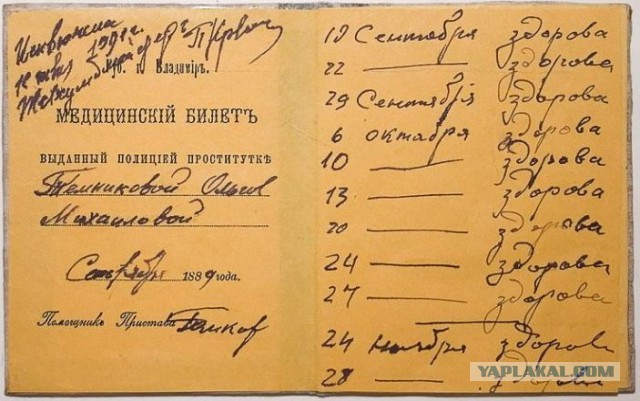 Губ. г. Владиміръ.
МЕДИЦИНСКІЙ БИЛЕТЪ
ВЫДАННЫЙ ПОЛИЦІЕЙ ПРОСТИТУТКѢ
Темниковой
Михайловой
Сентября 1889 года.
Помощникъ Пристава
19 Сентября здорова
22 — здорова
29 Сентября здорова
6 октября здорова
10 — здорова
13 — здорова
20 — здорова
24 — здорова
27 — здорова
24 ноября здорова
28 — здорова
YAPLAKAL.COM